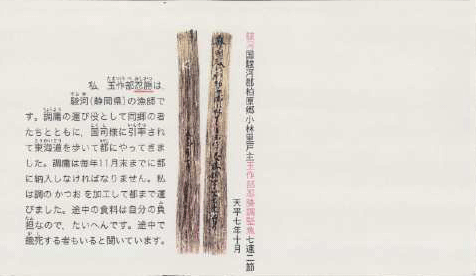 私、玉作部忍勝は、
駿河(静岡県)の漁師で
す。調庸の運び役として同郷の者
たちとともに、国司様に引率され
て東海道を歩いて都にやってきま
した。調庸は毎年11月末までに都
に納入しなければなりません。私
は調のかつおを加工して都まで運
びました。途中の食料は自分の負
担なので、たいへんです。途中で
餓死する者もいると聞いています。
駿河国駿河郡柏原郷小林里戸主玉作部忍勝調堅魚七連二節
天平七年十月